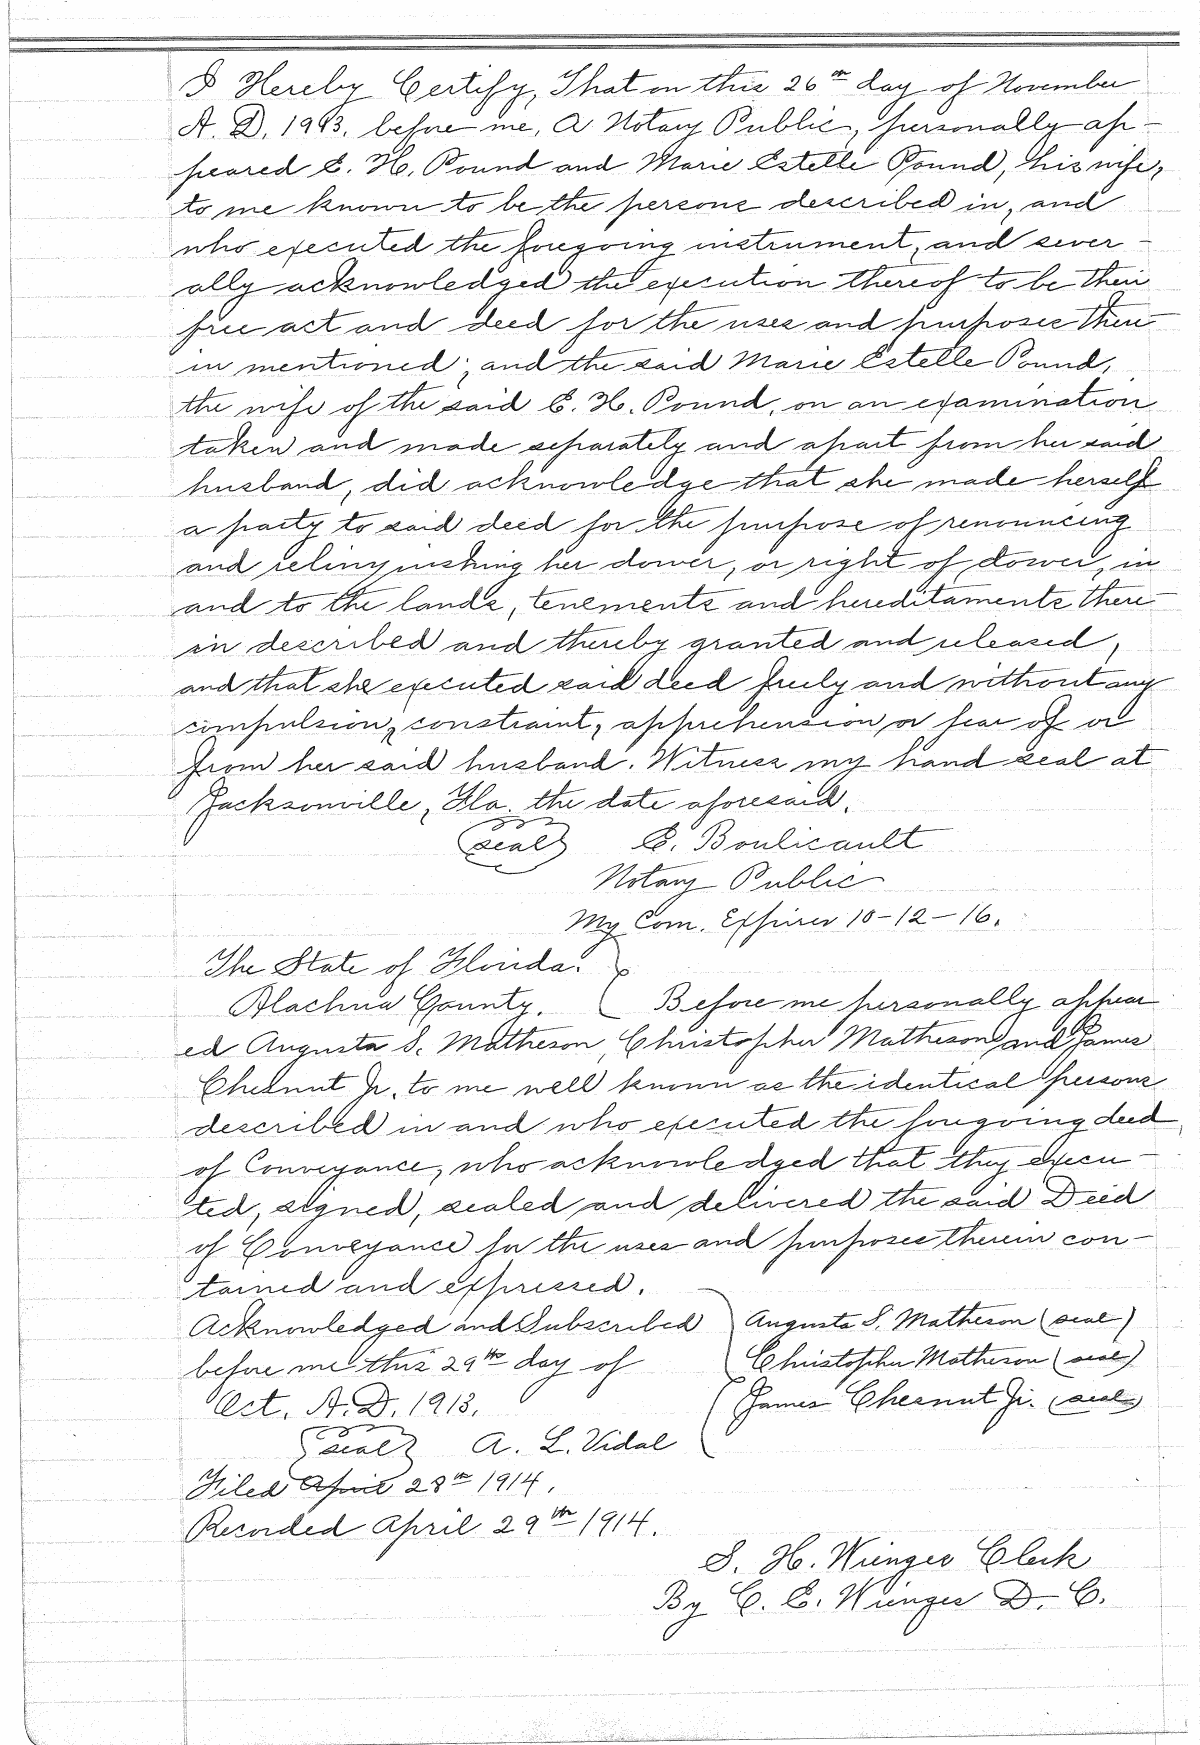 I Hereby Certify, That on this 26th day of November
A. D. 1913. before me, a Notary Public, personally ap-
peared E. H. Pound and Marie Estelle Pound, his wife,
to me known to be the persons described in, and
who executed the foregoing instrument, and sever-
ally acknowledged the execution thereof to be their
free act and deed for the uses and purposes there
in mentioned; and the said Marie Estelle Pound,
the wife of the said E. H. Pound, on an examination
taken and made separately and apart from her said
husband, did acknowledge that she made herself
a party to said deed for the purpose of renouncing
and relinquishing her dower, or right of dower, in
and to the lands, tenements and hereditaments there
in described and thereby granted and released,
and that she executed said deed freely and without any
compulsion, constraint, apprehension or fear of or
from her said husband. Witness my hand seal at
Jacksonville, Fla. the date aforesaid.
(seal) E. Boulicault
Notary Public
My Com. Expires 10-12-16.
The State of Florida.
Alachua County. Before me personally appear
ed Augusta S. Matheson, Christopher Matheson, and James
Chesnut Jr. to me well known as the identical persons
described in and who executed the foregoing deed
of Conveyance, who acknowledged that they execu-
ted, signed, sealed and delivered the said Deed
of Conveyance for the uses and purposes therein con-
tained and expressed.
Acknowledged and Subscribed Augusta S. Matheson (seal)
before me this 29th day of Christopher Matheson (seal)
Oct. A. D. 1913. James Chesnut Jr. (seal)
(seal) A. L. Vidal
Filed April 28th 1914.
Recorded April 29th 1914.
S. H. Wienges Clerk
By C. E. Wienges D. C.